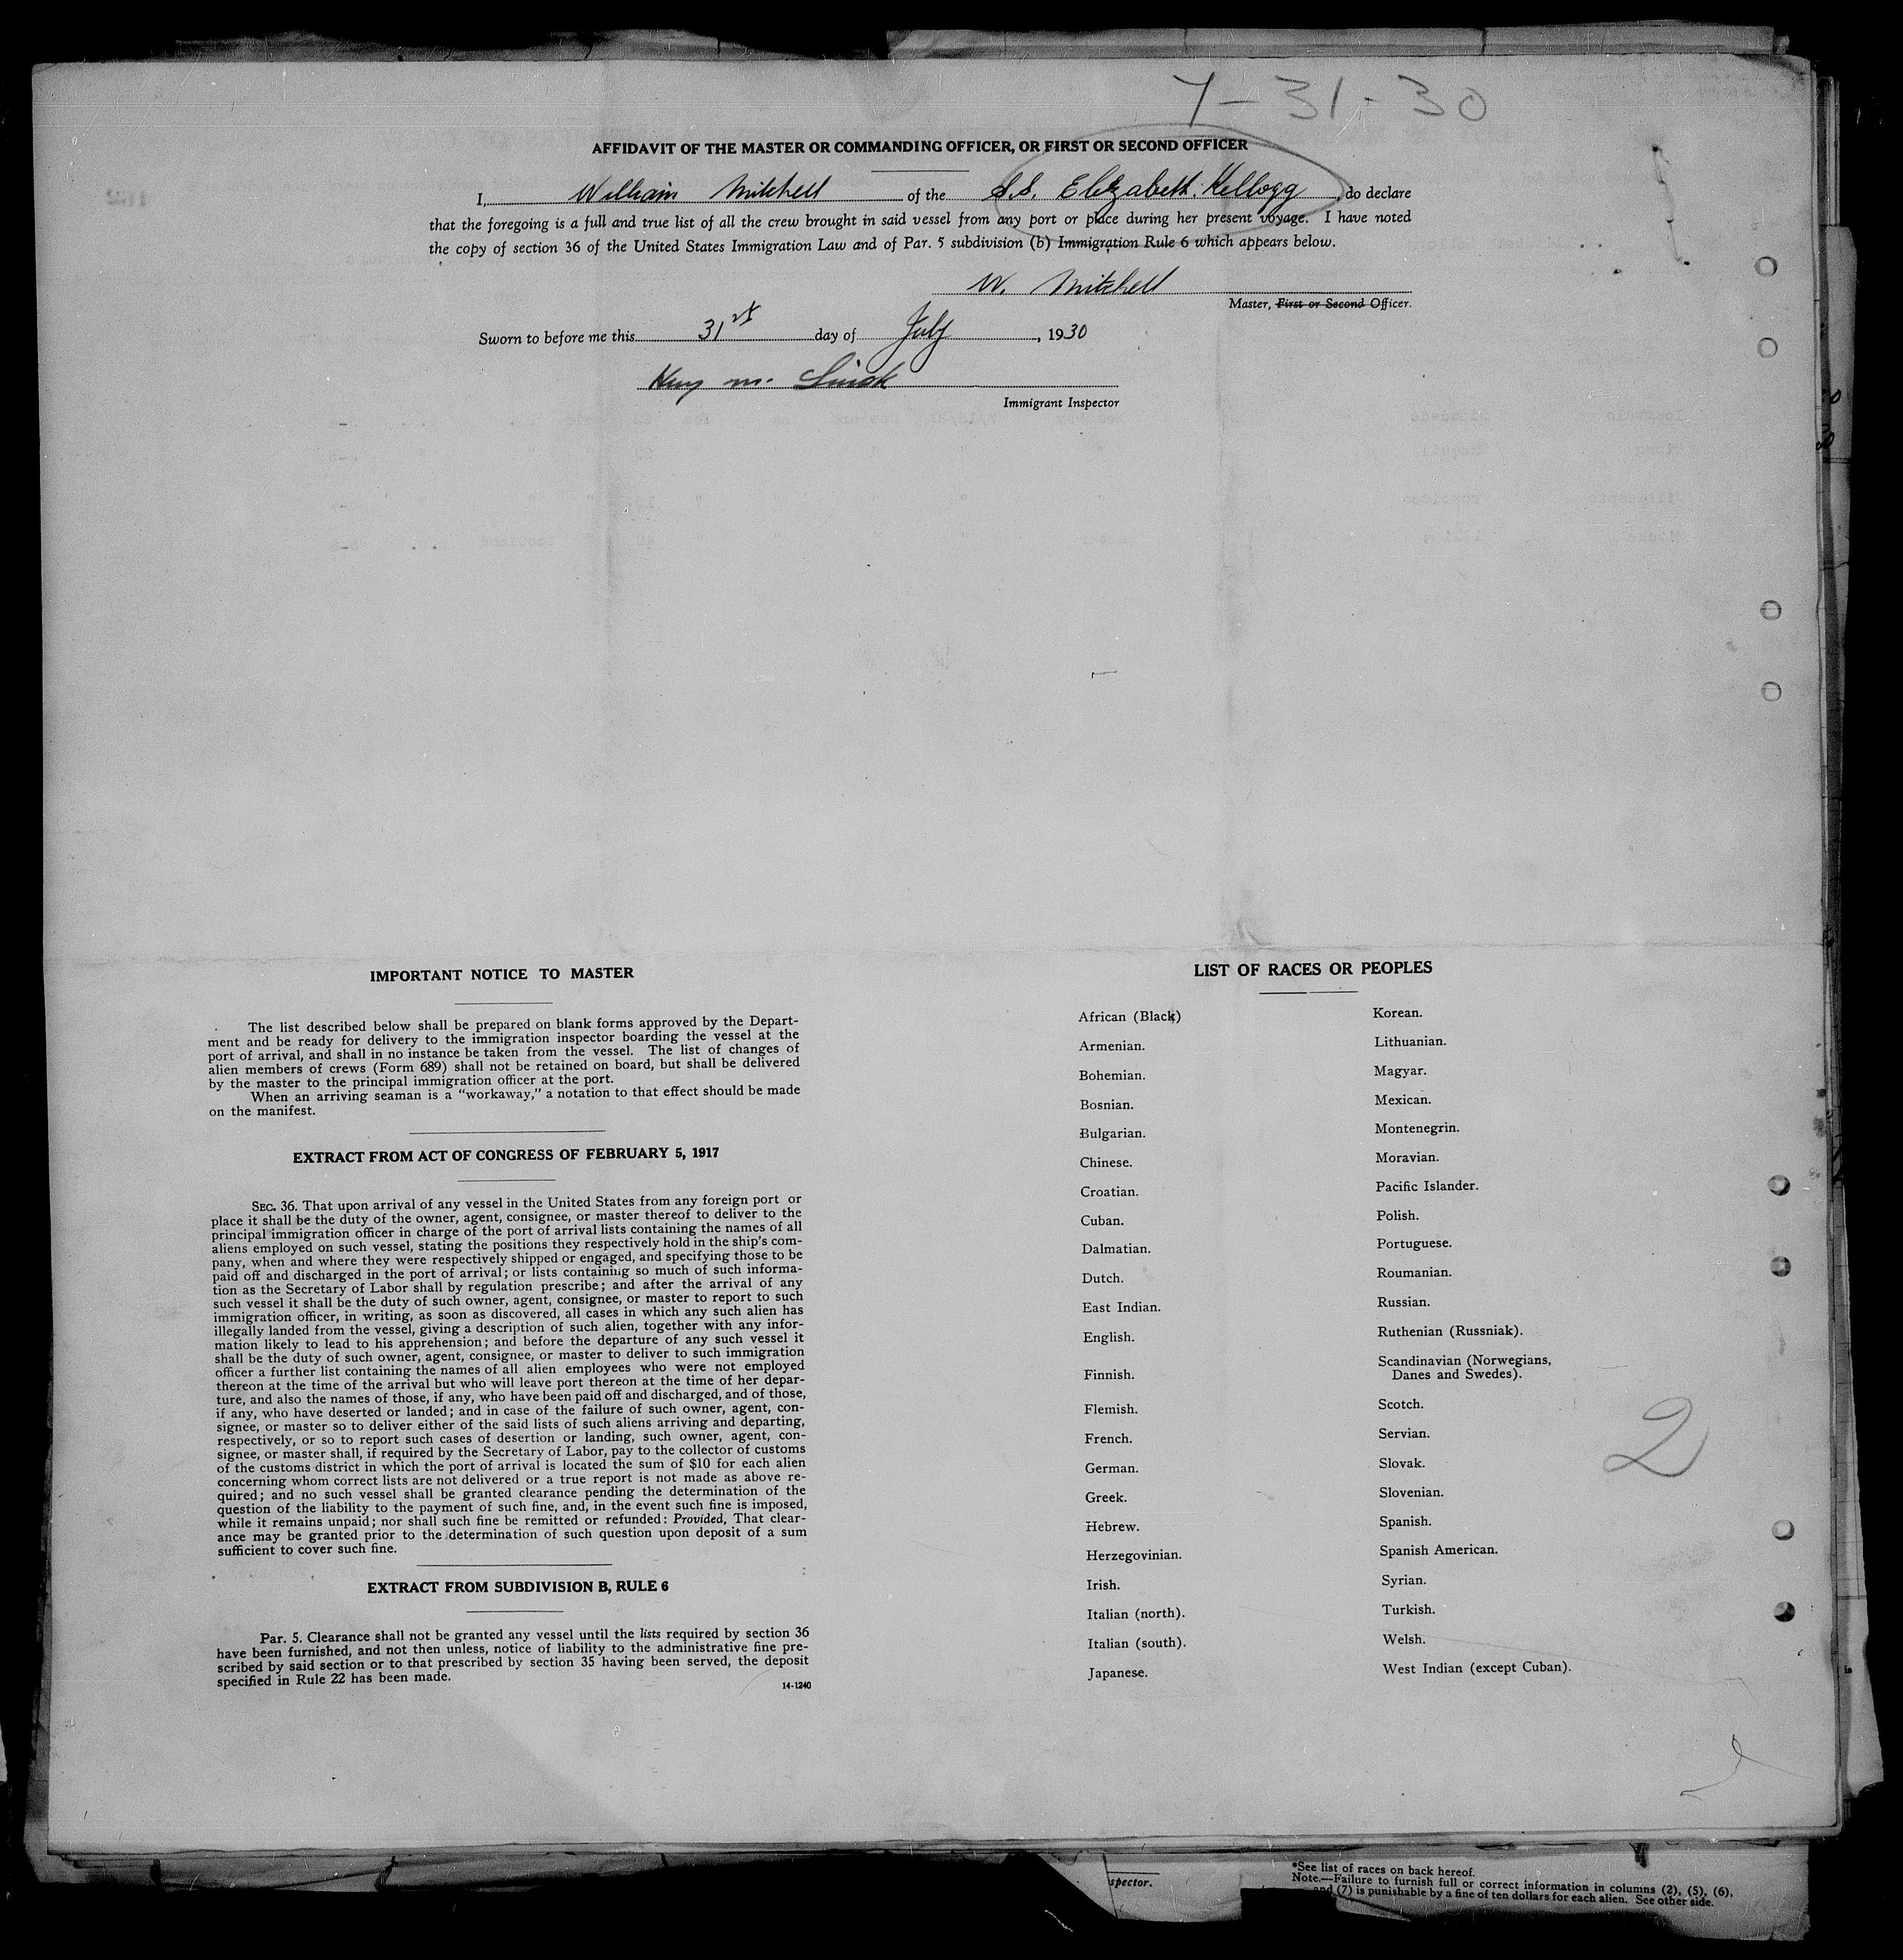 7-31-30
AFFIDAVIT OF THE MASTER OR COMMANDING OFFICER, OR FIRST OR SECOND OFFICER
I, William Mitchell of the S.S. Elizabeth Kellogg, do declare
that the foregoing is a full and true list of all the crew brought in said vessel from any port or place during her present voyage. I have noted
the copy of section 36 of the United States Immigration Law and of Par. 5 subdivision (b) Immigration Rule 6 which appears below.
W. Mitchell
Master, First or Second Officer.
Sworn to before me this 31st day of July, 1930
M.
Immigrant Inspector
IMPORTANT NOTICE TO MASTER
The list described below shall be prepared on blank forms approved by the Depart-
ment and be ready for delivery to the immigration inspector boarding the vessel at the
port of arrival, and shall in no instance be taken from the vessel. The list of changes of
alien members of crews (Form 689) shall not be retained on board, but shall be delivered
by the master to the principal immigration officer at the port.
When an arriving seaman is a "workaway," a notation to that effect should be made
on the manifest.
EXTRACT FROM ACT OF CONGRESS OF FEBRUARY 5, 1917
SEC. 36. That upon arrival of any vessel in the United States from any foreign port or
place it shall be the duty of the owner, agent, consignee, or master thereof to deliver to the
principal immigration officer in charge of the port of arrival lists containing the names of all
aliens employed on such vessel, stating the positions they respectively hold in the ship's com-
pany, when and where they were respectively shipped or engaged, and specifying those to be
paid off and discharged in the port of arrival; or lists containing so much of such informa-
tion as the Secretary of Labor shall by regulation prescribe; and after the arrival of any
such vessel it shall be the duty of such owner, agent, consignee, or master to report to such
immigration officer, in writing, as soon as discovered, all cases in which any such alien has
illegally landed from the vessel, giving a description of such alien, together with any infor-
mation likely to lead to his apprehension; and before the departure of any such vessel it
shall be the duty of such owner, agent, consignee, or master to deliver to such immigration
officer a further list containing the names of all alien employees who were not employed
thereon at the time of the arrival but who will leave port thereon at the time of her depar-
ture, and also the names of those, if any, who have been paid off and discharged, and of those,
if any, who have deserted or landed; and in case of the failure of such owner, agent, con-
signee, or master so to deliver either of the said lists of such aliens arriving and departing,
respectively, or so to report such cases of desertion or landing, such owner, agent, con-
signee, or master shall, if required by the Secretary of Labor, pay to the collector of customs
of the customs district in which the port of arrival is located the sum of $10 for each alien
concerning whom correct lists are not delivered or a true report is not made as above re-
quired; and no such vessel shall be granted clearance pending the determination of the
question of the liability to the payment of such fine, and, in the event such fine is imposed,
while it remains unpaid; nor shall such fine be remitted or refunded: Provided, That clear-
ance may be granted prior to the determination of such question upon deposit of a sum
sufficient to cover such fine.
EXTRACT FROM SUBDIVISION B, RULE 6
Par. 5. Clearance shall not be granted any vessel until the lists required by section 36
have been furnished, and not then unless, notice of liability to the administrative fine pre-
scribed by said section or to that prescribed by section 35 having been served, the deposit
specified in Rule 22 has been made.
14-1240
LIST OF RACES OR PEOPLES
African (Black)
Armenian.
Bohemian.
Bosnian.
Bulgarian.
Chinese.
Croatian.
Cuban.
Dalmatian.
Dutch.
East Indian.
English.
Finnish.
Flemish.
French.
German.
Greek.
Hebrew.
Herzegovinian.
Irish.
Italian (north).
Italian (south).
Japanese.
Korean.
Lithuanian.
Magyar.
Mexican.
Montenegrin.
Moravian.
Pacific Islander.
Polish.
Portuguese.
Roumanian.
Russian.
Ruthenian (Russniak).
Scandinavian (Norwegians,
Danes and Swedes).
Scotch.
Servian.
Slovak.
Slovenian.
Spanish.
Spanish American.
Syrian.
Turkish.
Welsh.
West Indian (except Cuban).
2
spector.
*See list of races on back hereof.
Note.—Failure to furnish full or correct information in columns (2), (5), (6),
and (7) is punishable by a fine of ten dollars for each alien. See other side.